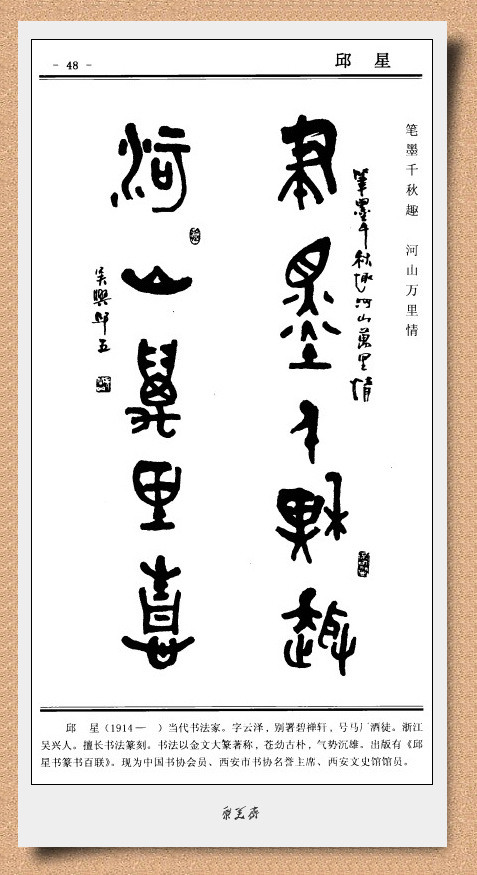 - 48 -
邱 星
笔墨千秋趣 河山万里情
筆墨千秋趣河山萬里情
筆墨千秋趣
河山萬里情
吴興邱五
邱　星（1914—　）当代书法家。字云泽，别署碧禅轩，号马厂酒徒。浙江
吴兴人。擅长书法篆刻。书法以金文大篆著称，苍劲古朴，气势沉雄。出版有《邱
星书篆书百联》。现为中国书协会员、西安市书协名誉主席、西安文史馆馆员。